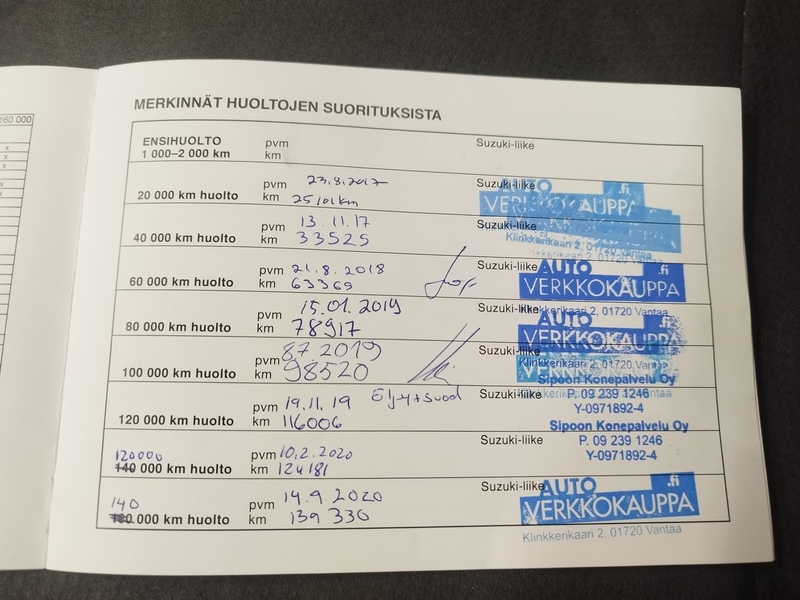 160 000
x
x
x
MERKINNÄT HUOLTOJEN SUORITUKSISTA
ENSIHUOLTO pvm Suzuki-liike
1 000–2 000 km km
20 000 km huolto pvm 23.8.2017 Suzuki-liike AUTO .fi
km km VERKKOKAUPPA
40 000 km huolto pvm 13.11.17 Suzuki-liike
km 33525 Klinkkerikaari 2, 01720 Vantaa
60 000 km huolto pvm 21.8.2018 Suzuki-liike AUTO .fi
km 63369 VERKKOKAUPPA
Klinkkerikaari 2, 01720 Vantaa
80 000 km huolto pvm 15.01.2019 Suzuki-liike AUTO .fi
km 78917 VERKKOKAUPPA
100 000 km huolto pvm 8.7.2019 Suzuki-liike
km 98520 Klinkkerikaari 2, 01720 Vantaa
Sipoon Konepalvelu Oy
120 000 km huolto pvm 19.11.19 Suzuki-liike P. 09 239 1246
km 116006 Y-0971892-4
Sipoon Konepalvelu Oy
120000
140 000 km huolto pvm 10.2.2020 Suzuki-liike P. 09 239 1246
km 124181 Y-0971892-4
140
000 km huolto pvm 14.9 2020 Suzuki-liike AUTO .fi
km 139 330 VERKKOKAUPPA
Klinkkerikaari 2, 01720 Vantaa